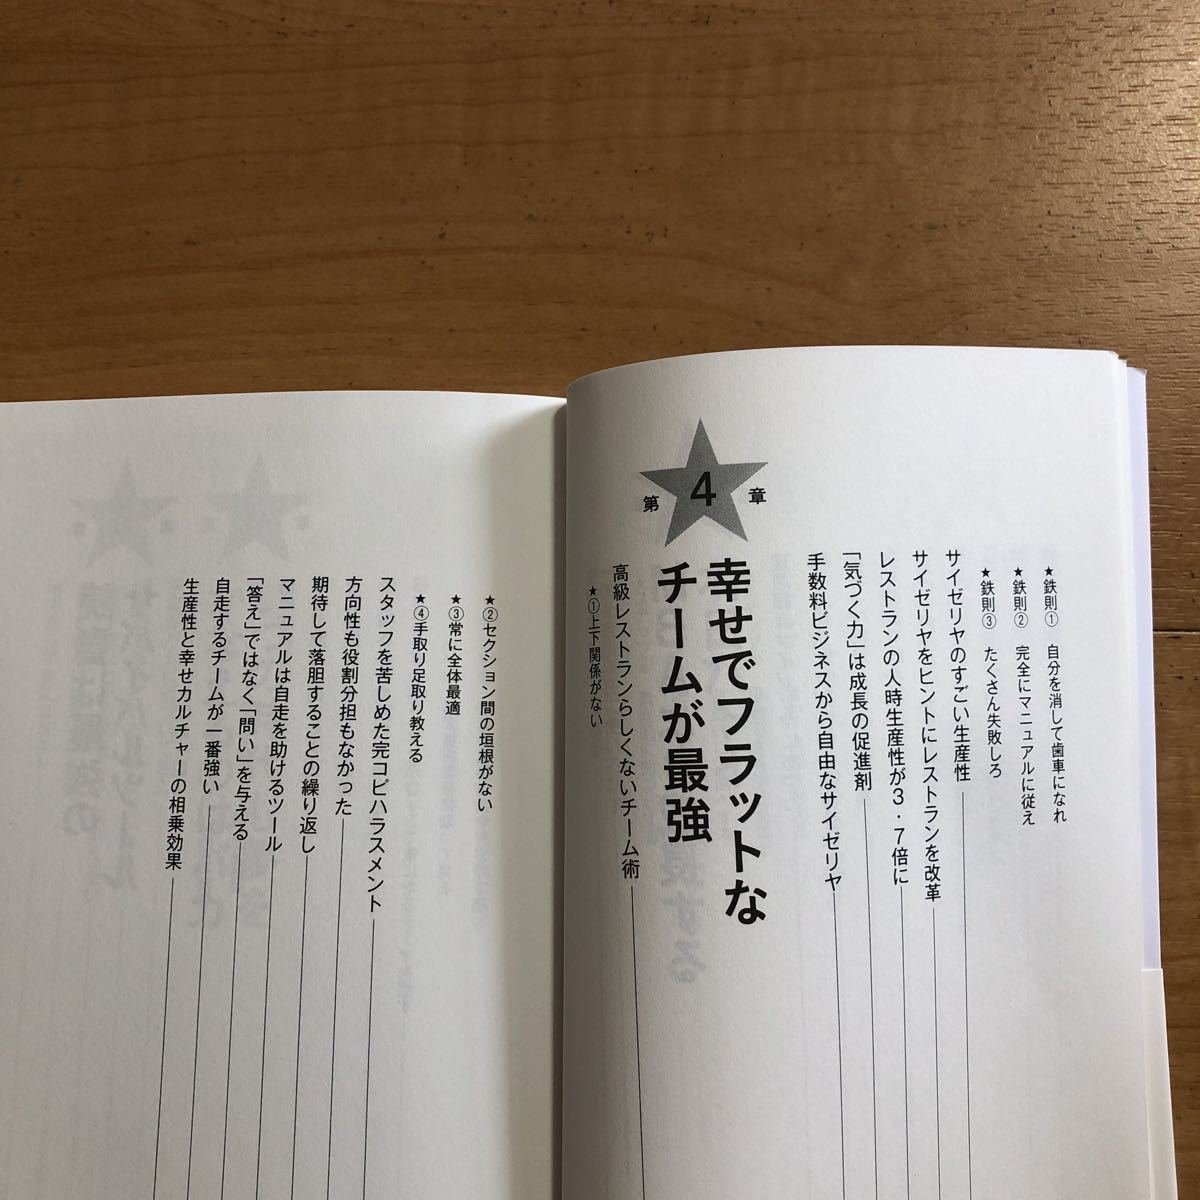 ★鉄則① 自分を消して歯車になれ
★鉄則② 完全にマニュアルに従え
★鉄則③ たくさん失敗しろ
サイゼリヤのすごい生産性
サイゼリヤをヒントにレストランを改革
レストランの人時生産性が3・7倍に
「気づく力」は成長の促進剤
手数料ビジネスから自由なサイゼリヤ
第4章
幸せでフラットな
チームが最強
高級レストランらしくないチーム術
★①上下関係がない
★②セクション間の垣根がない
★③常に全体最適
★④手取り足取り教える
スタッフを苦しめた完コピハラスメント
方向性も役割分担もなかった
期待して落胆することの繰り返し
マニュアルは自走を助けるツール
「答え」ではなく「問い」を与える
自走するチームが一番強い
生産性と幸せカルチャーの相乗効果